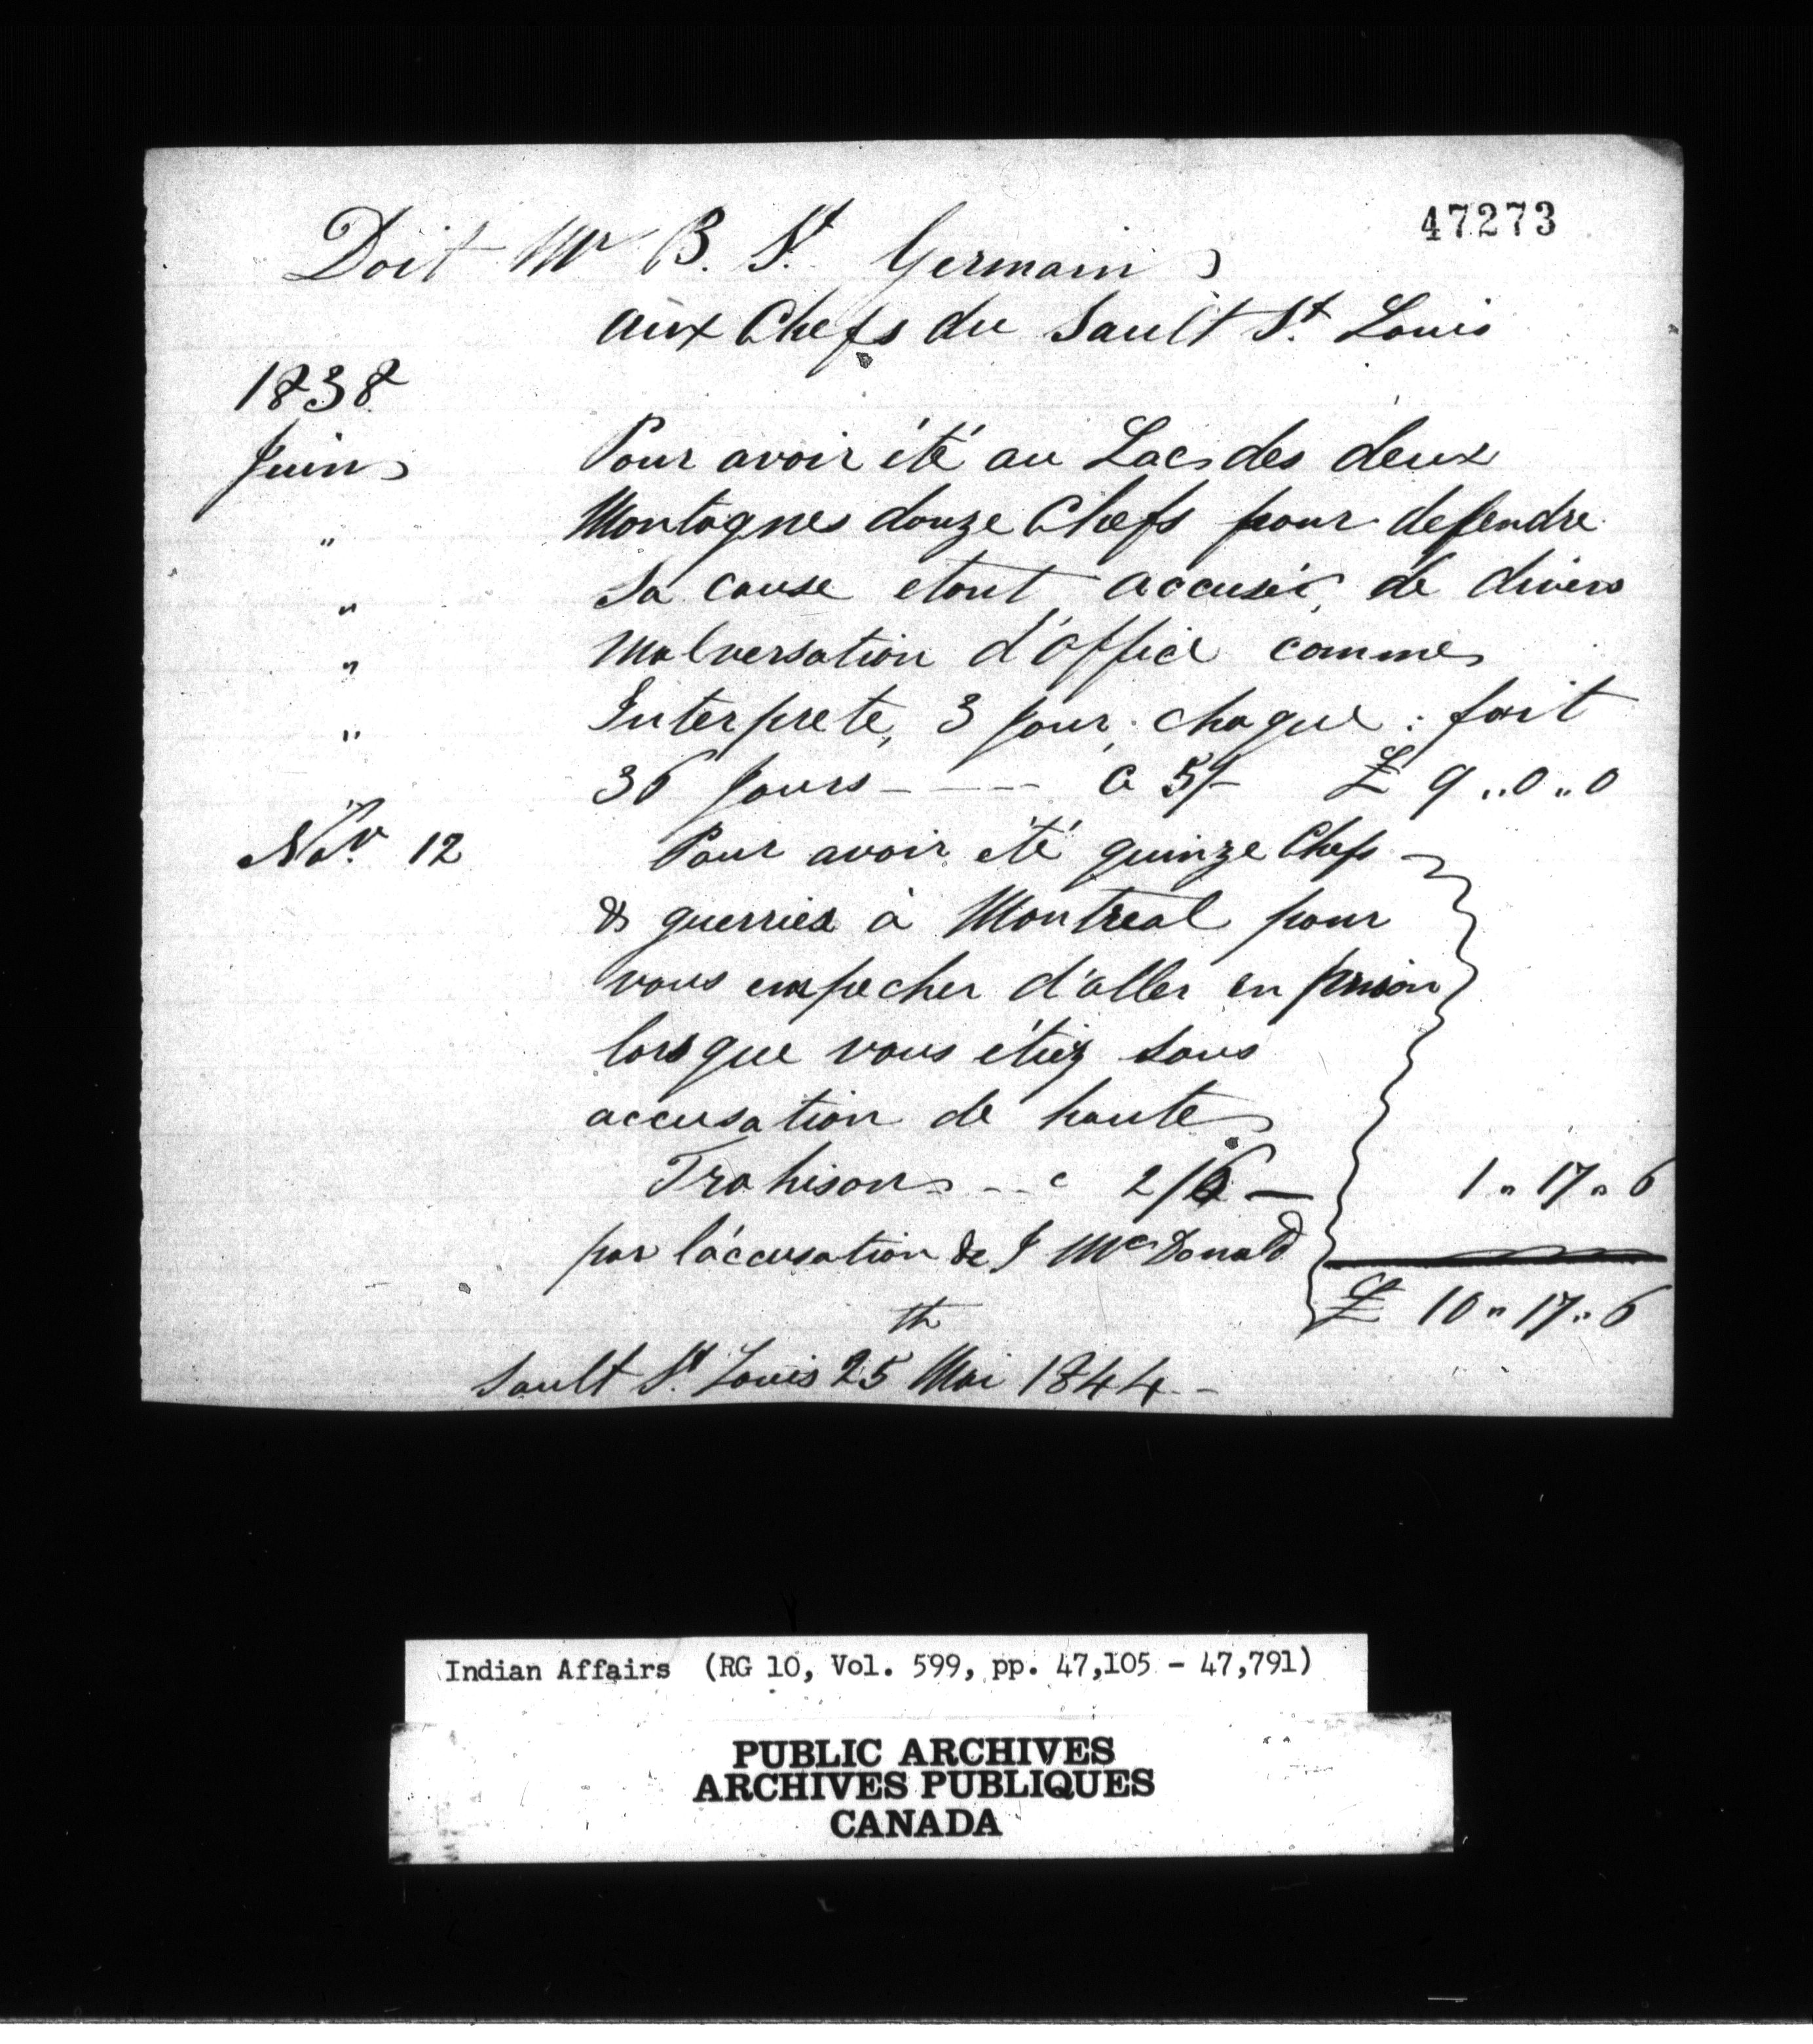 47273
Doit Mr B. St. Germain
aux Chefs du Sault St. Louis
1838
Juin Pour avoir été au Lac des deux
" Montagnes douze Chefs pour defendre
" Sa cause etant accusé de divers
" malversation d'office comme
" Interprete, 3 jour chaque : fait
36 Jours - - - - a 5/- £ 9 .. 0 .. 0
Nov. 12 Pour avoir été quinze Chefs
& guerries à Montreal pour
vous empecher d'aller en prison
lorsque vous étiez sous
accusation de haute
Trahison - - a 2/6 — 1 " 17 " 6
par l'accusation de J McDonald
£ 10 " 17 " 6
Sault St. Louis 25th Mai 1844 -
Indian Affairs (RG 10, Vol. 599, pp. 47,105 - 47,791)
PUBLIC ARCHIVES
ARCHIVES PUBLIQUES
CANADA